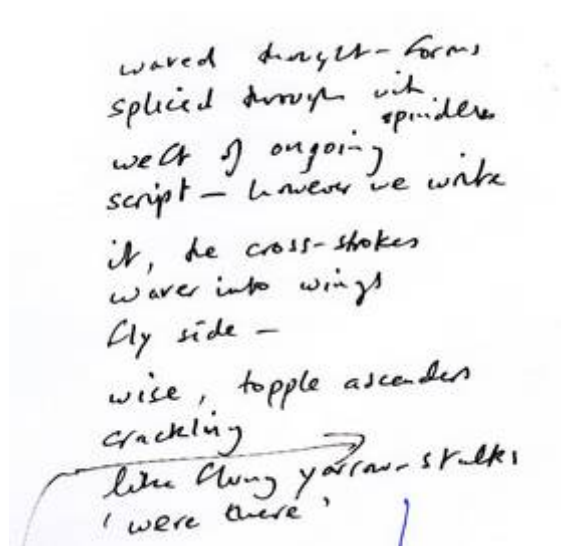 waved thought-forms
spliced through with
spindles
weft of ongoing
script — however we write
it, the cross-strokes
waver into wings
fly side —
wise, topple ascenders
crackling
like flung yarrow-stalks
'were there'